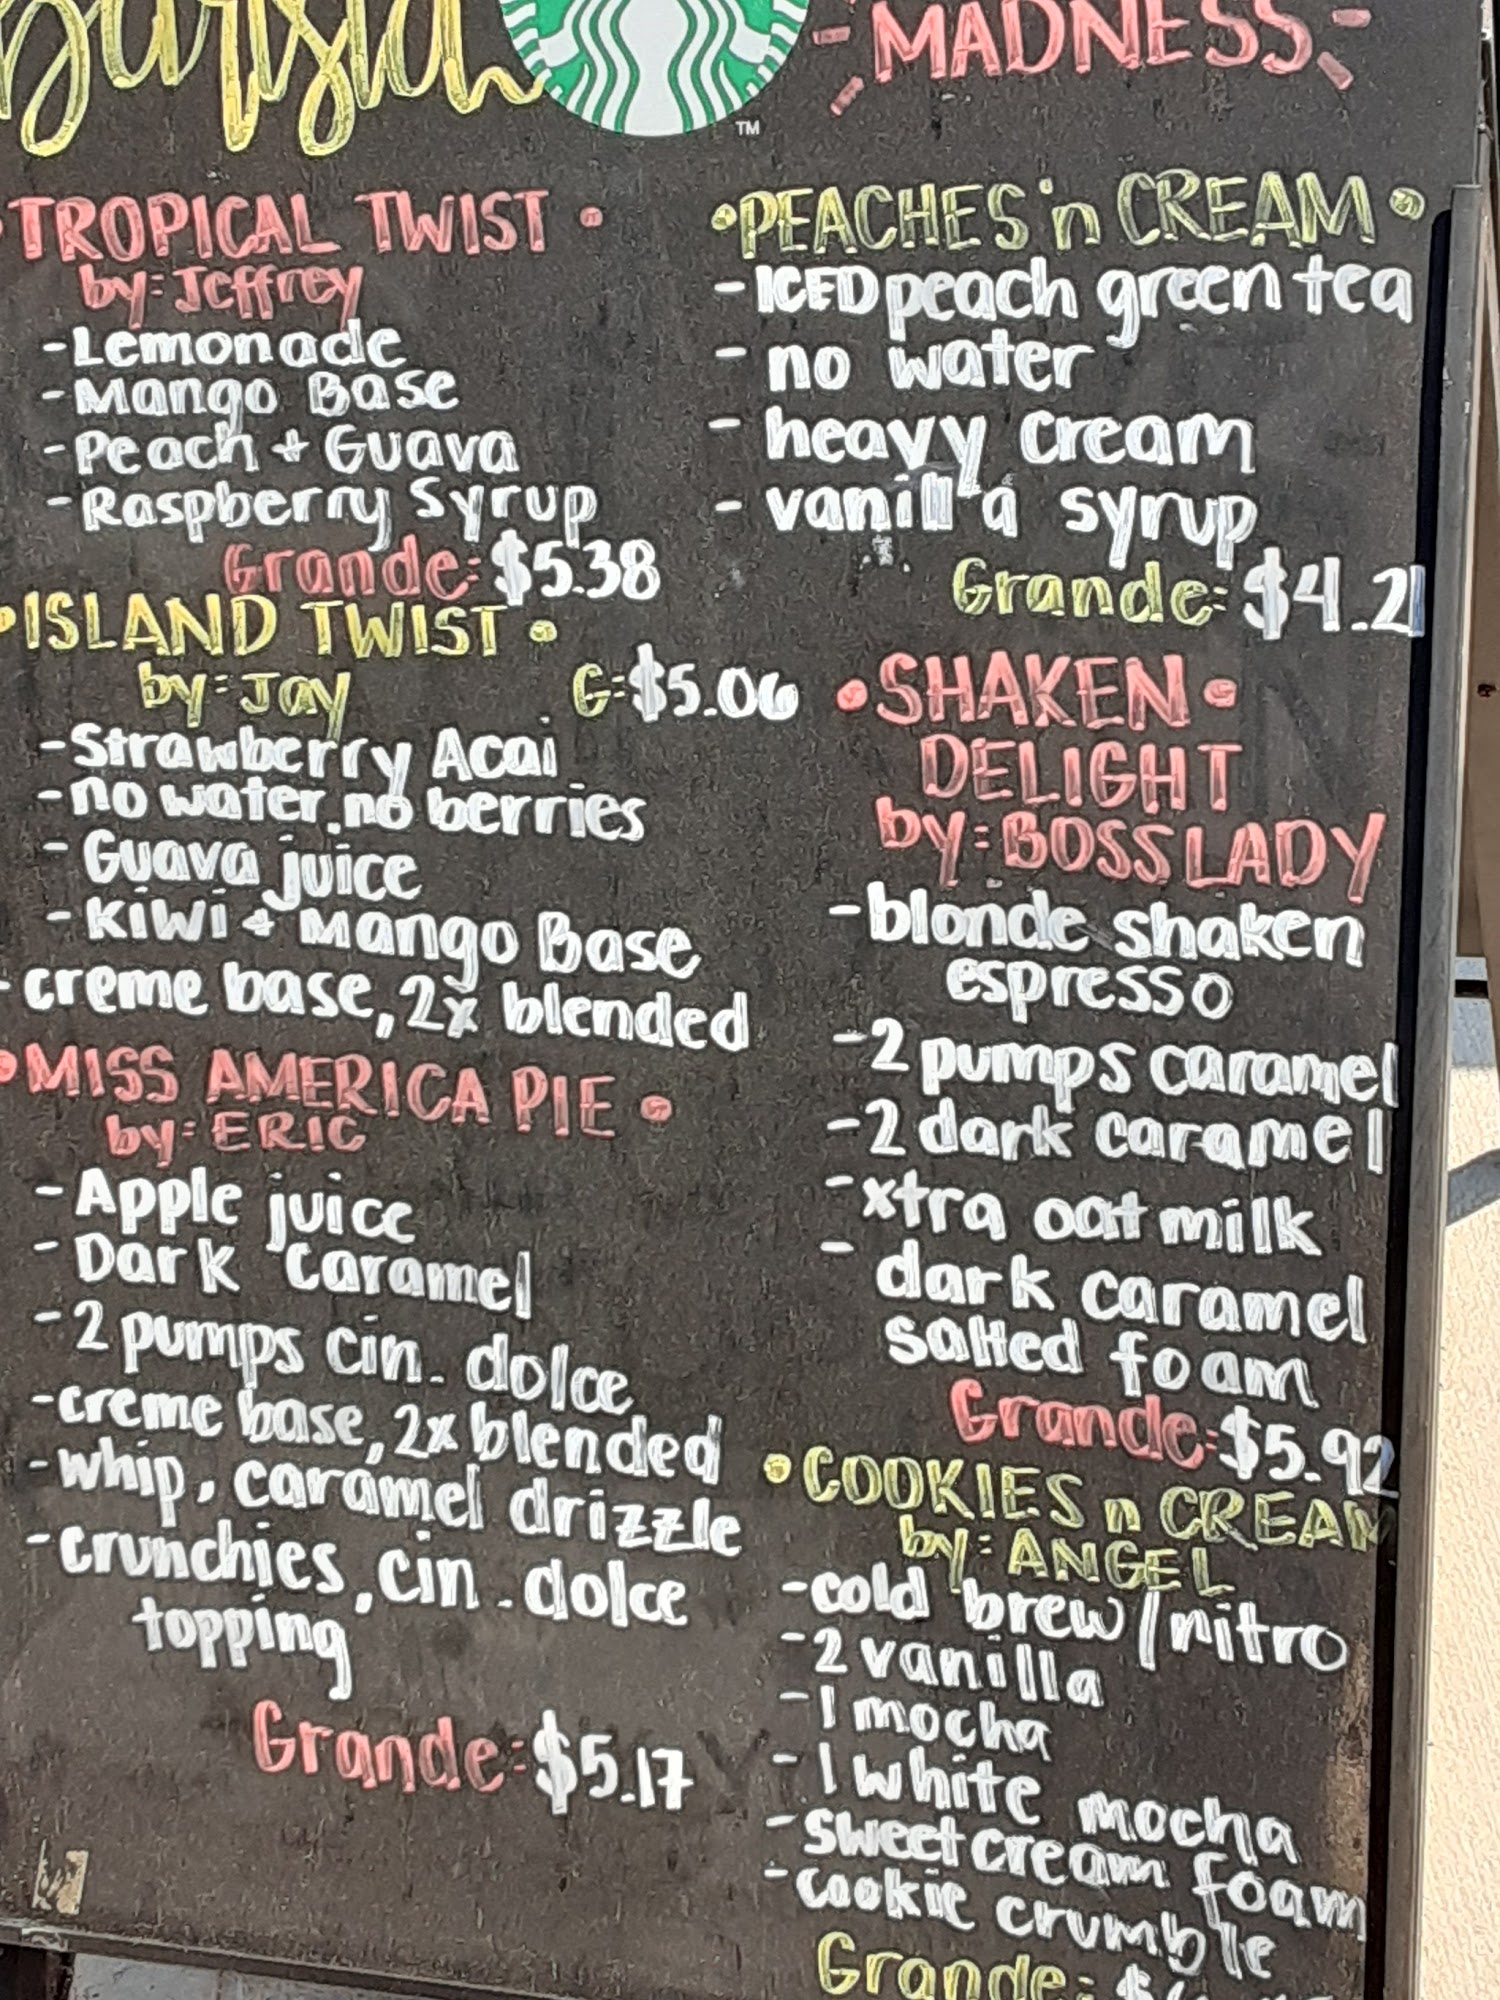 Barista
MADNESS
TM
•TROPICAL TWIST•
by: Jeffrey
-Lemonade
-Mango Base
-Peach + Guava
-Raspberry Syrup
Grande: $5.38
•ISLAND TWIST•
by: Jay G: $5.06
-Strawberry Acai
-no water, no berries
-Guava juice
-Kiwi + Mango Base
-creme base, 2x blended
•MISS AMERICA PIE•
by: ERIC
-Apple juice
-Dark Caramel
-2 pumps cin. dolce
-creme base, 2x blended
-whip, caramel drizzle
-crunchies, cin. dolce
topping
Grande: $5.17
•PEACHES 'n CREAM•
-ICED peach green tea
-no water
-heavy cream
-vanilla syrup
Grande: $4.21
•SHAKEN•
DELIGHT
by: BOSS LADY
-blonde shaken
espresso
-2 pumps caramel
-2 dark caramel
-xtra oatmilk
-dark caramel
salted foam
Grande: $5.92
•COOKIES n CREAM
by: ANGEL
-cold brew/nitro
-2 vanilla
-1 mocha
-1 white mocha
-sweet cream foam
-cookie crumble
Grande: $